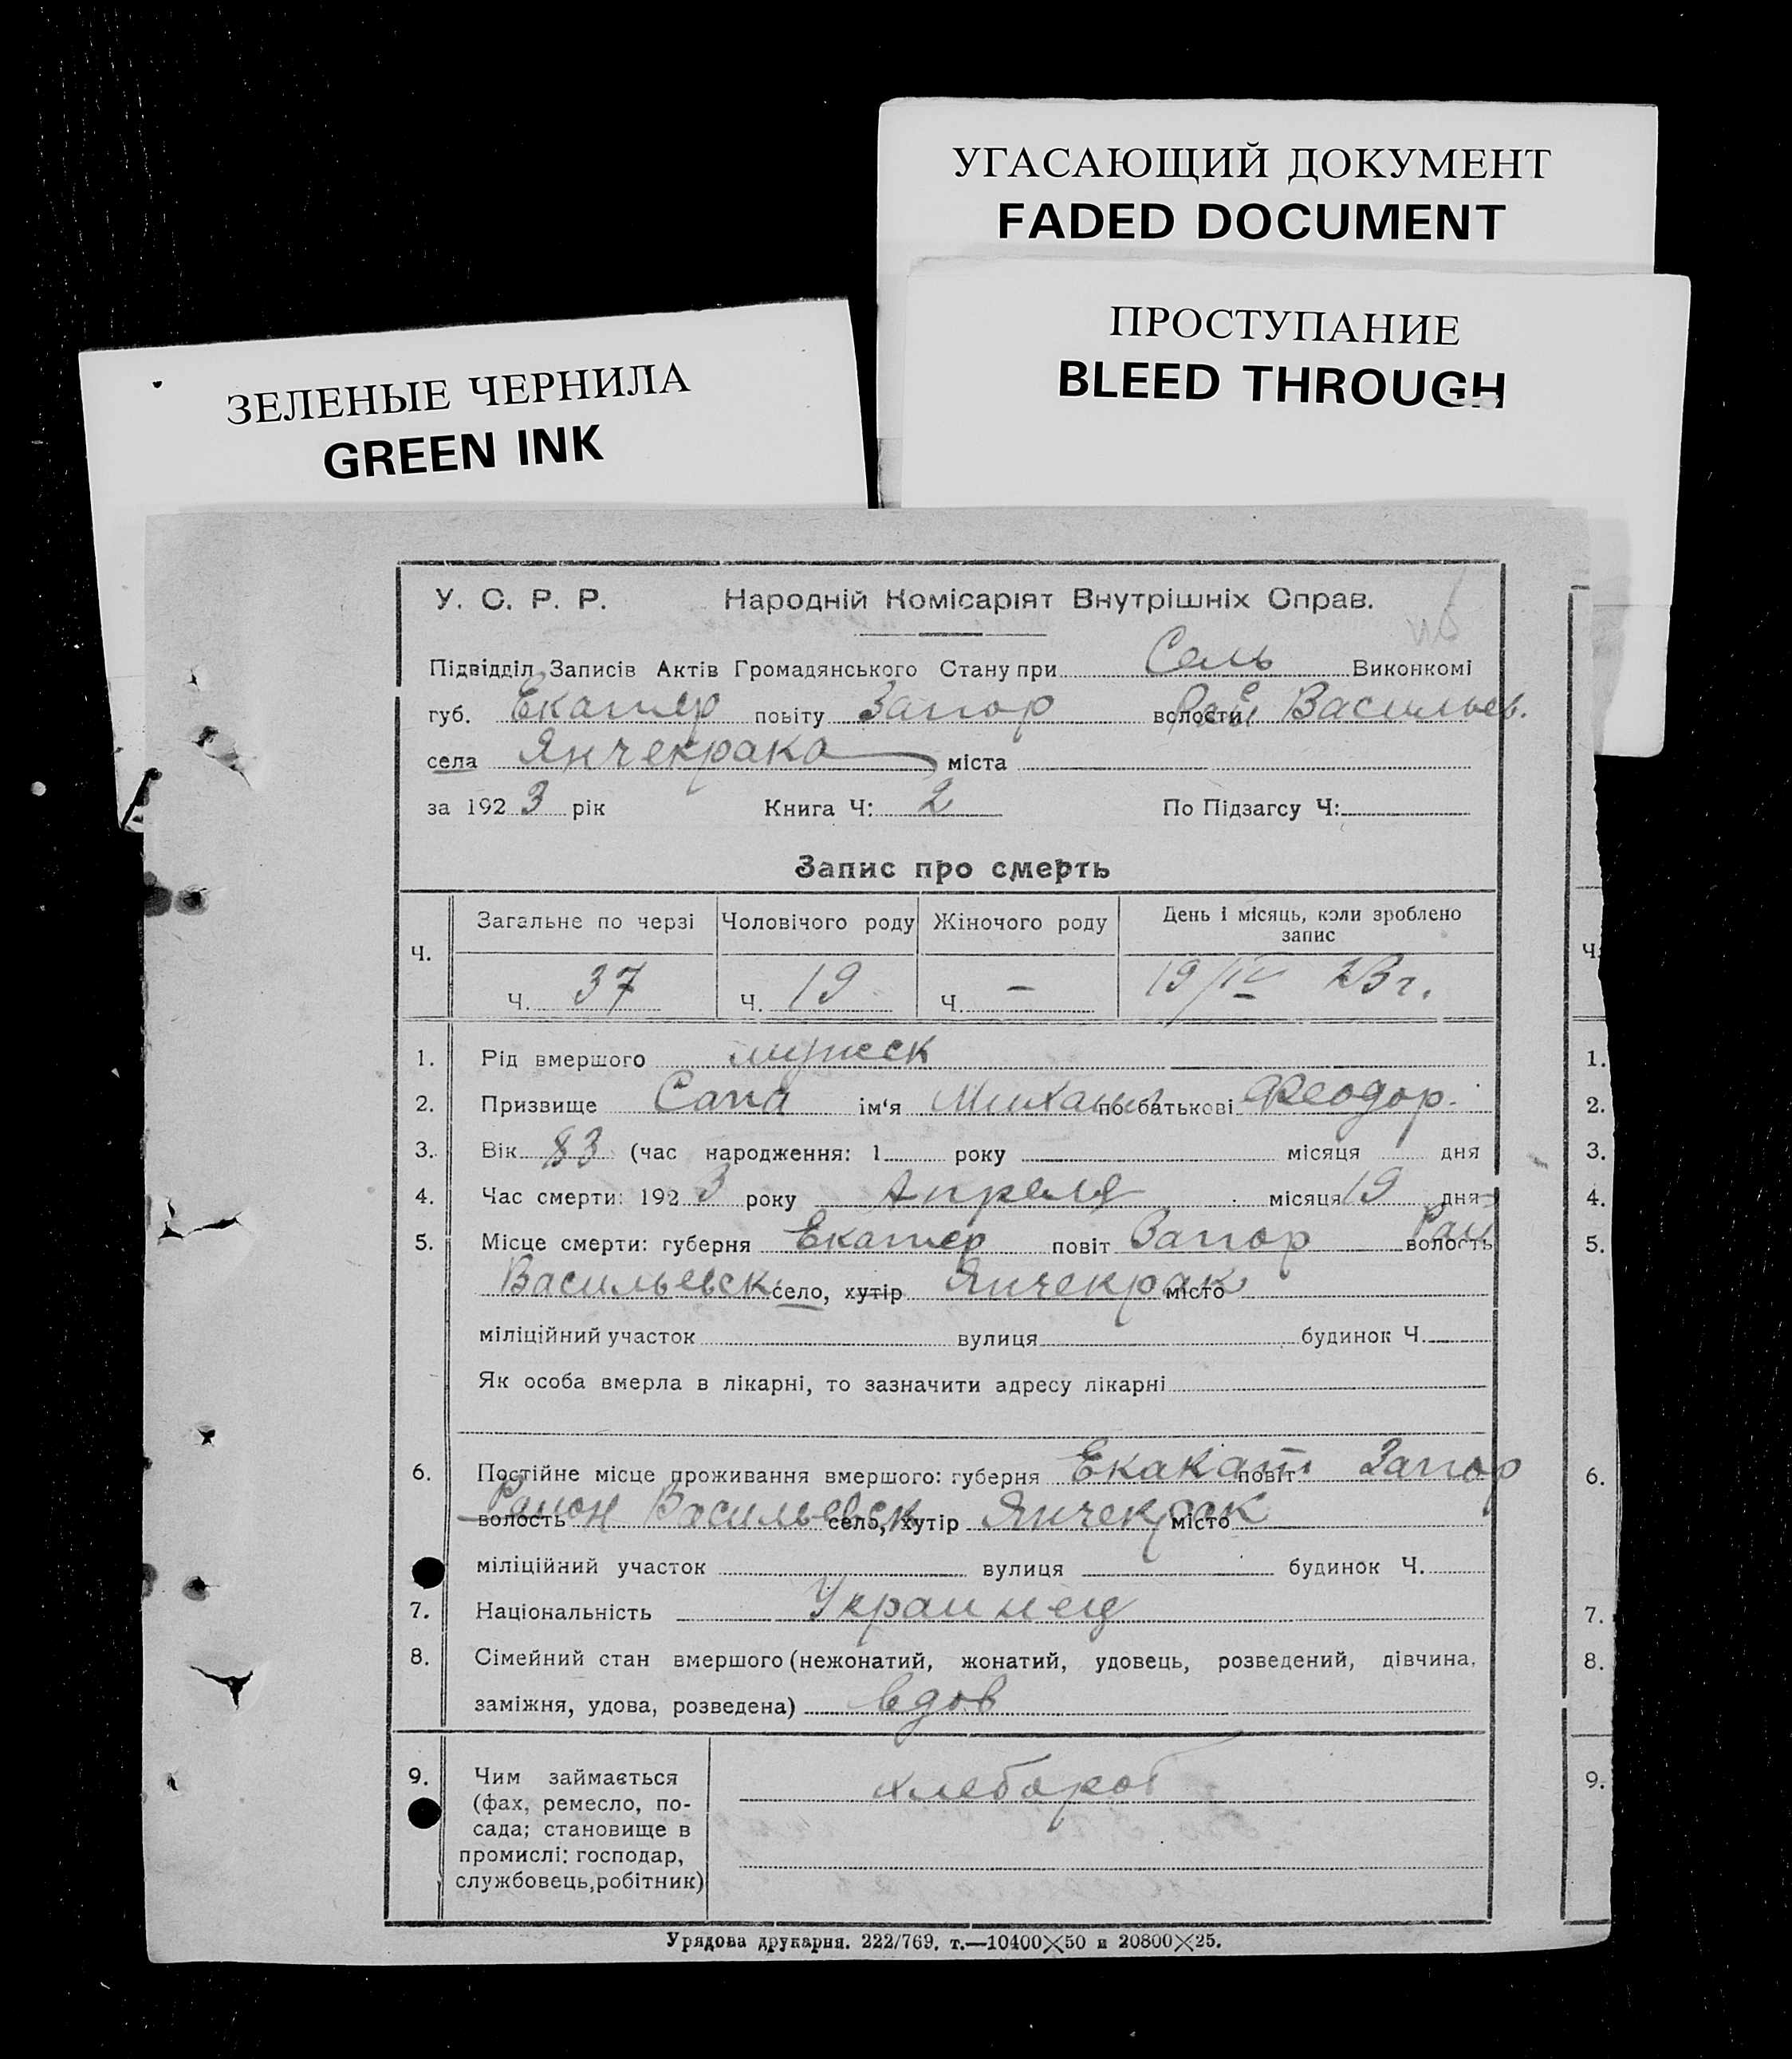 УГАСАЮЩИЙ ДОКУМЕНТ
FADED DOCUMENT
ПРОСТУПАНИЕ
BLEED THROUGH
ЗЕЛЕНЫЕ ЧЕРНИЛА
GREEN INK
У. С. Р. Р. Народній Комісаріят Внутрішніх Справ.
Підвідділ Записів Актів Громадянського Стану при Сель Виконкомі
губ. Екатер повіту Запор волости Васильев.
села Янчекрака міста
за 1923 рік Книга Ч: 2 По Підзагсу Ч:
Запис про смерть
Ч. Загальне по черзі Чоловічого роду Жіночого роду День і місяць, коли зроблено запис
Ч. 37 Ч. 19 Ч. — 19/IV 23 г.
1. Рід вмершого мужеск
2. Призвище Сапа ім'я Михаил по батькові Феодор.
3. Вік 83 (час народження: 1 року місяця дня
4. Час смерти: 1923 року Апреля місяця 19 дня
5. Місце смерти: губерня Екатер повіт Запор волость Рай
Васильевск село, хутір Янчекрак місто
міліційний участок вулиця будинок Ч.
Як особа вмерла в лікарні, то зазначити адресу лікарні
6. Постійне місце проживання вмершого: губерня Екакат повіт Запор
волость Район Васильевск село, хутір Янчекрак місто
міліційний участок вулиця будинок Ч.
7. Національність Украинец
8. Сімейний стан вмершого (нежонатий, жонатий, удовець, розведений, дівчина,
заміжня, удова, розведена) вдов
9. Чим займається хлебороб
(фах, ремесло, по-
сада; становище в
промислі: господар,
службовець, робітник)
Урядова друкарня. 222/769. т.—10400×50 и 20800×25.
Ч.
1.
2.
3.
4.
5.
6.
7.
8.
9.